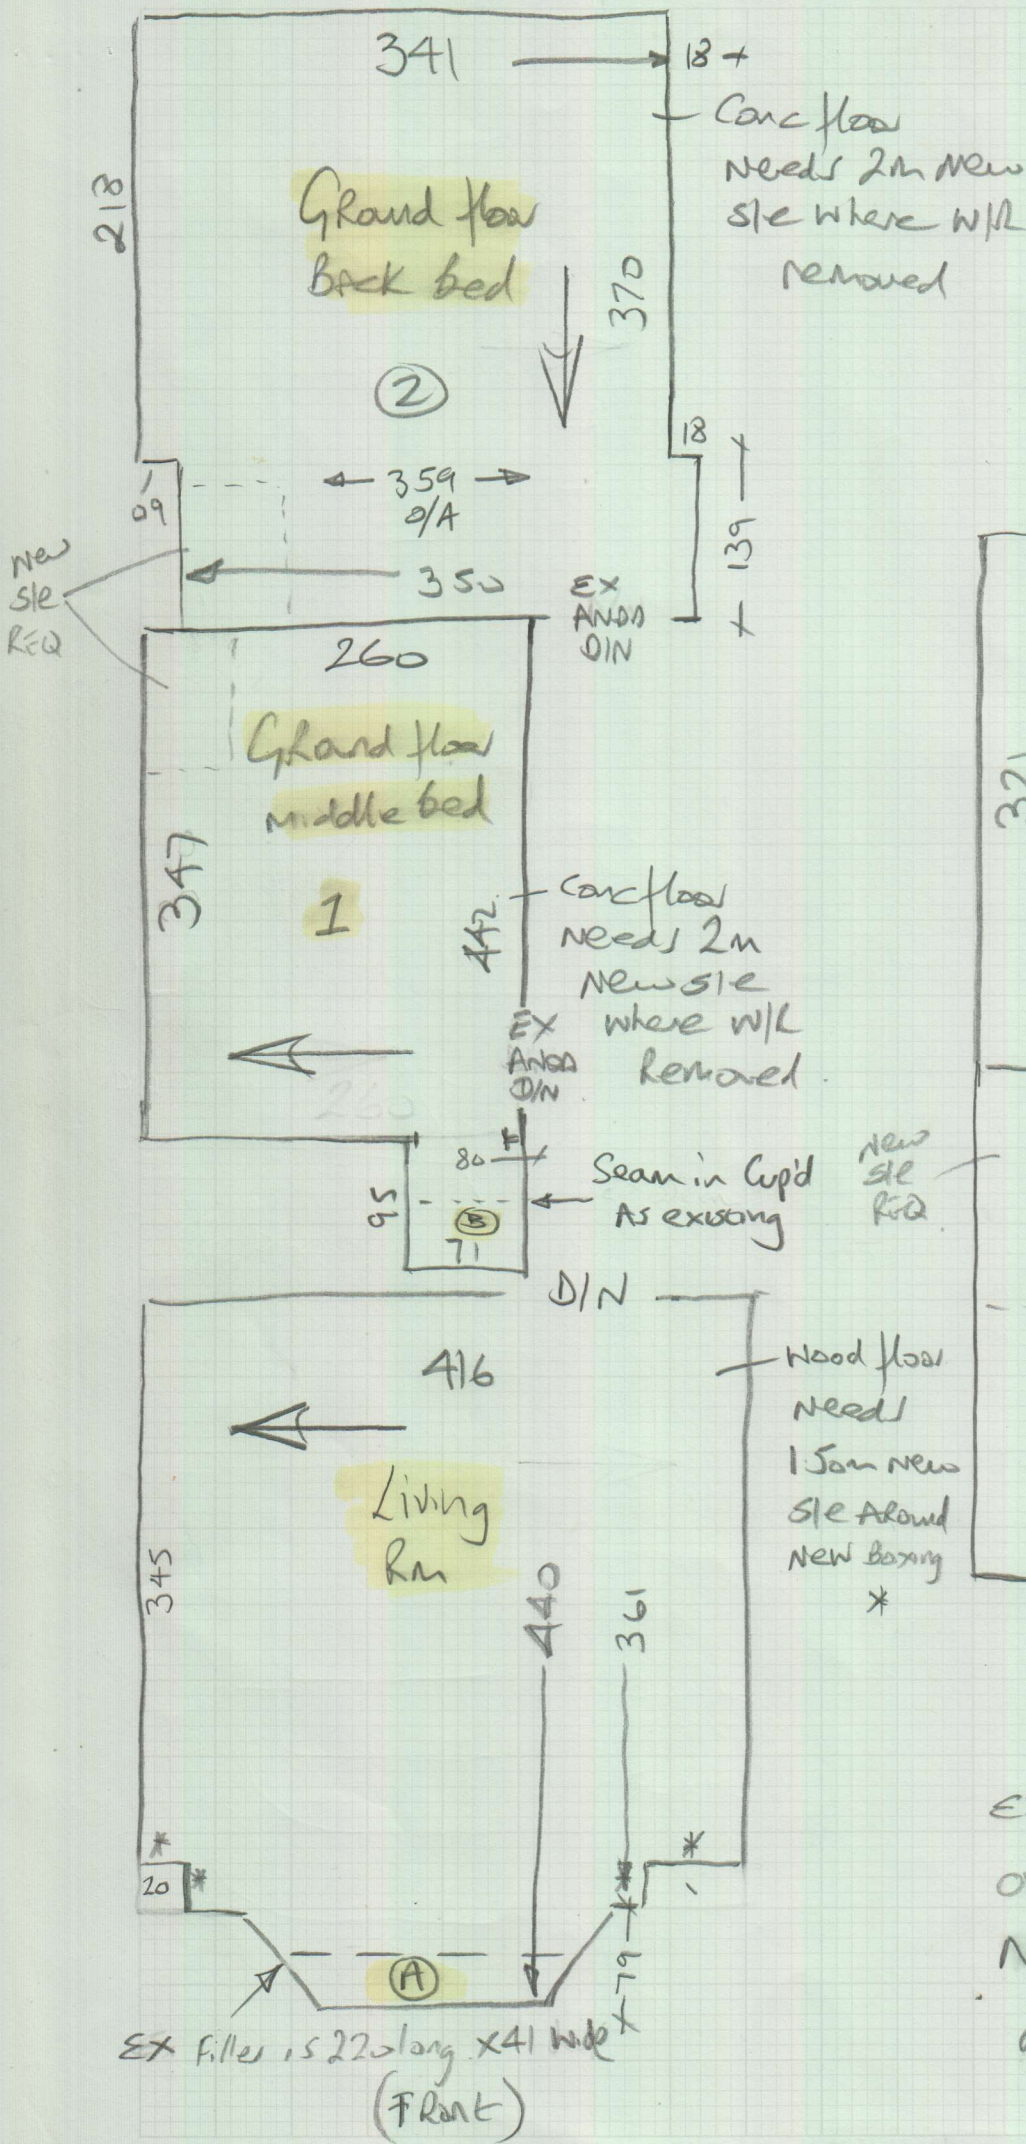 341
18
Conc floor
Needs 2m New
s/e where W/R
removed
213
Ground floor
Back bed
370
2
18
09
359
O/A
139
350
New
s/e
REQ
EX
ANOD
D/N
260
Ground floor
Middle bed
347
1
442
Conc floor
Needs 2m
New s/e
where W/R
Removed
EX
ANOD
D/N
260
80
Seam in Cup'd
As existing
95
B
71
New
s/e
REQ
321
D/N
416
Wood floor
Needs
1.50m New
s/e Around
New Boxing
*
Living
Rm
345
440
361
*
*
20
*
*
*
79
A
EX Filler is 220 long x 41 wide
(Front)